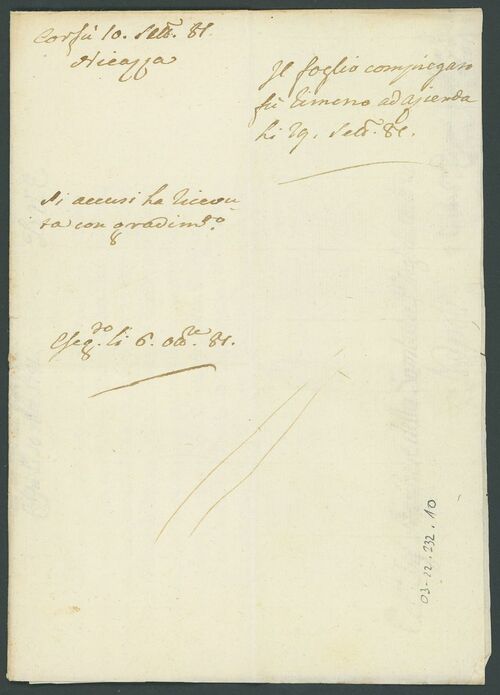 Corfù 10. Sett.e 81.
Nicazza
Il foglio compiegato
fù rimesso ad Azienda
li 29. Sett.e 81.
Si accusi la ricevu-
ta con gradim.to
Eseg.do li 6. Ott.re 81.
03-22.232.10